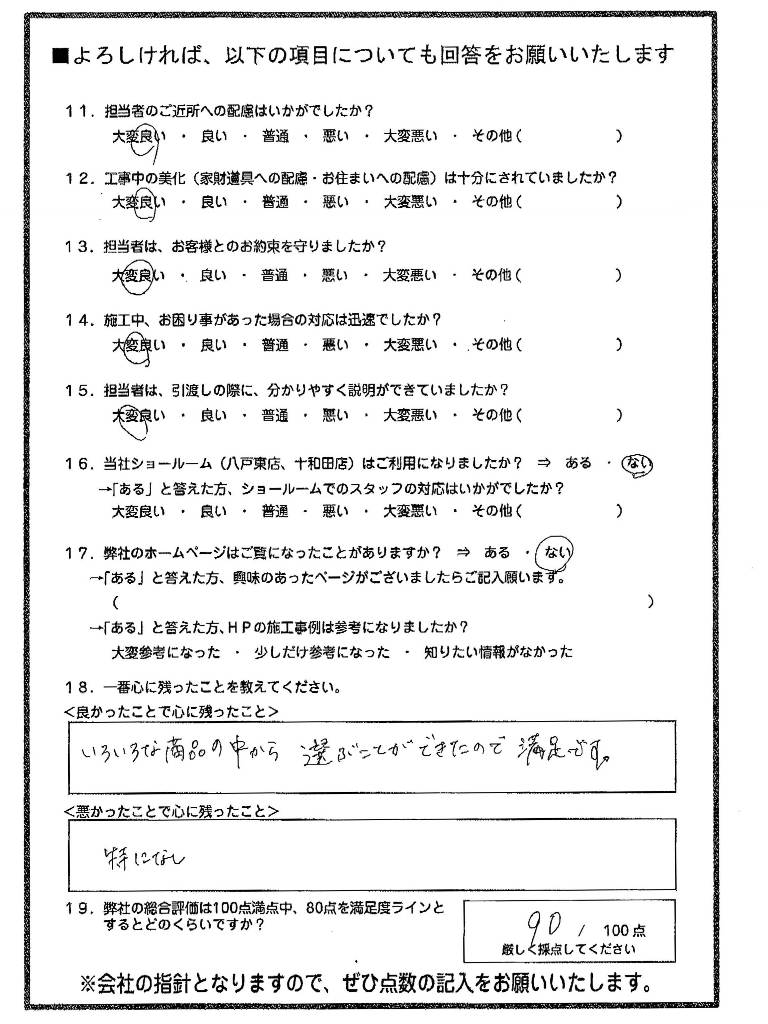 ■よろしければ、以下の項目についても回答をお願いいたします
11．担当者のご近所への配慮はいかがでしたか？
大変良い ・ 良い ・ 普通 ・ 悪い ・ 大変悪い ・ その他（　　　　　　）
12．工事中の美化（家財道具への配慮・お住まいへの配慮）は十分にされていましたか？
大変良い ・ 良い ・ 普通 ・ 悪い ・ 大変悪い ・ その他（　　　　　　）
13．担当者は、お客様とのお約束を守りましたか？
大変良い ・ 良い ・ 普通 ・ 悪い ・ 大変悪い ・ その他（　　　　　　）
14．施工中、お困り事があった場合の対応は迅速でしたか？
大変良い ・ 良い ・ 普通 ・ 悪い ・ 大変悪い ・ その他（　　　　　　）
15．担当者は、引渡しの際に、分かりやすく説明ができていましたか？
大変良い ・ 良い ・ 普通 ・ 悪い ・ 大変悪い ・ その他（　　　　　　）
16．当社ショールーム（八戸東店、十和田店）はご利用になりましたか？ ⇒ ある ・ ない
→「ある」と答えた方、ショールームでのスタッフの対応はいかがでしたか？
大変良い ・ 良い ・ 普通 ・ 悪い ・ 大変悪い ・ その他（　　　　　　）
17．弊社のホームページはご覧になったことがありますか？ ⇒ ある ・ ない
→「ある」と答えた方、興味のあったページがございましたらご記入願います。
（　　　　　　　　　　　　　　　　　　　　）
→「ある」と答えた方、HPの施工事例は参考になりましたか？
大変参考になった ・ 少しだけ参考になった ・ 知りたい情報がなかった
18．一番心に残ったことを教えてください。
＜良かったことで心に残ったこと＞
いろいろな商品の中から 選ぶことができたので 満足です。
＜悪かったことで心に残ったこと＞
特になし
19．弊社の総合評価は100点満点中、80点を満足度ラインと
するとどのくらいですか？
90 / 100点
厳しく採点してください
※会社の指針となりますので、ぜひ点数の記入をお願いいたします。